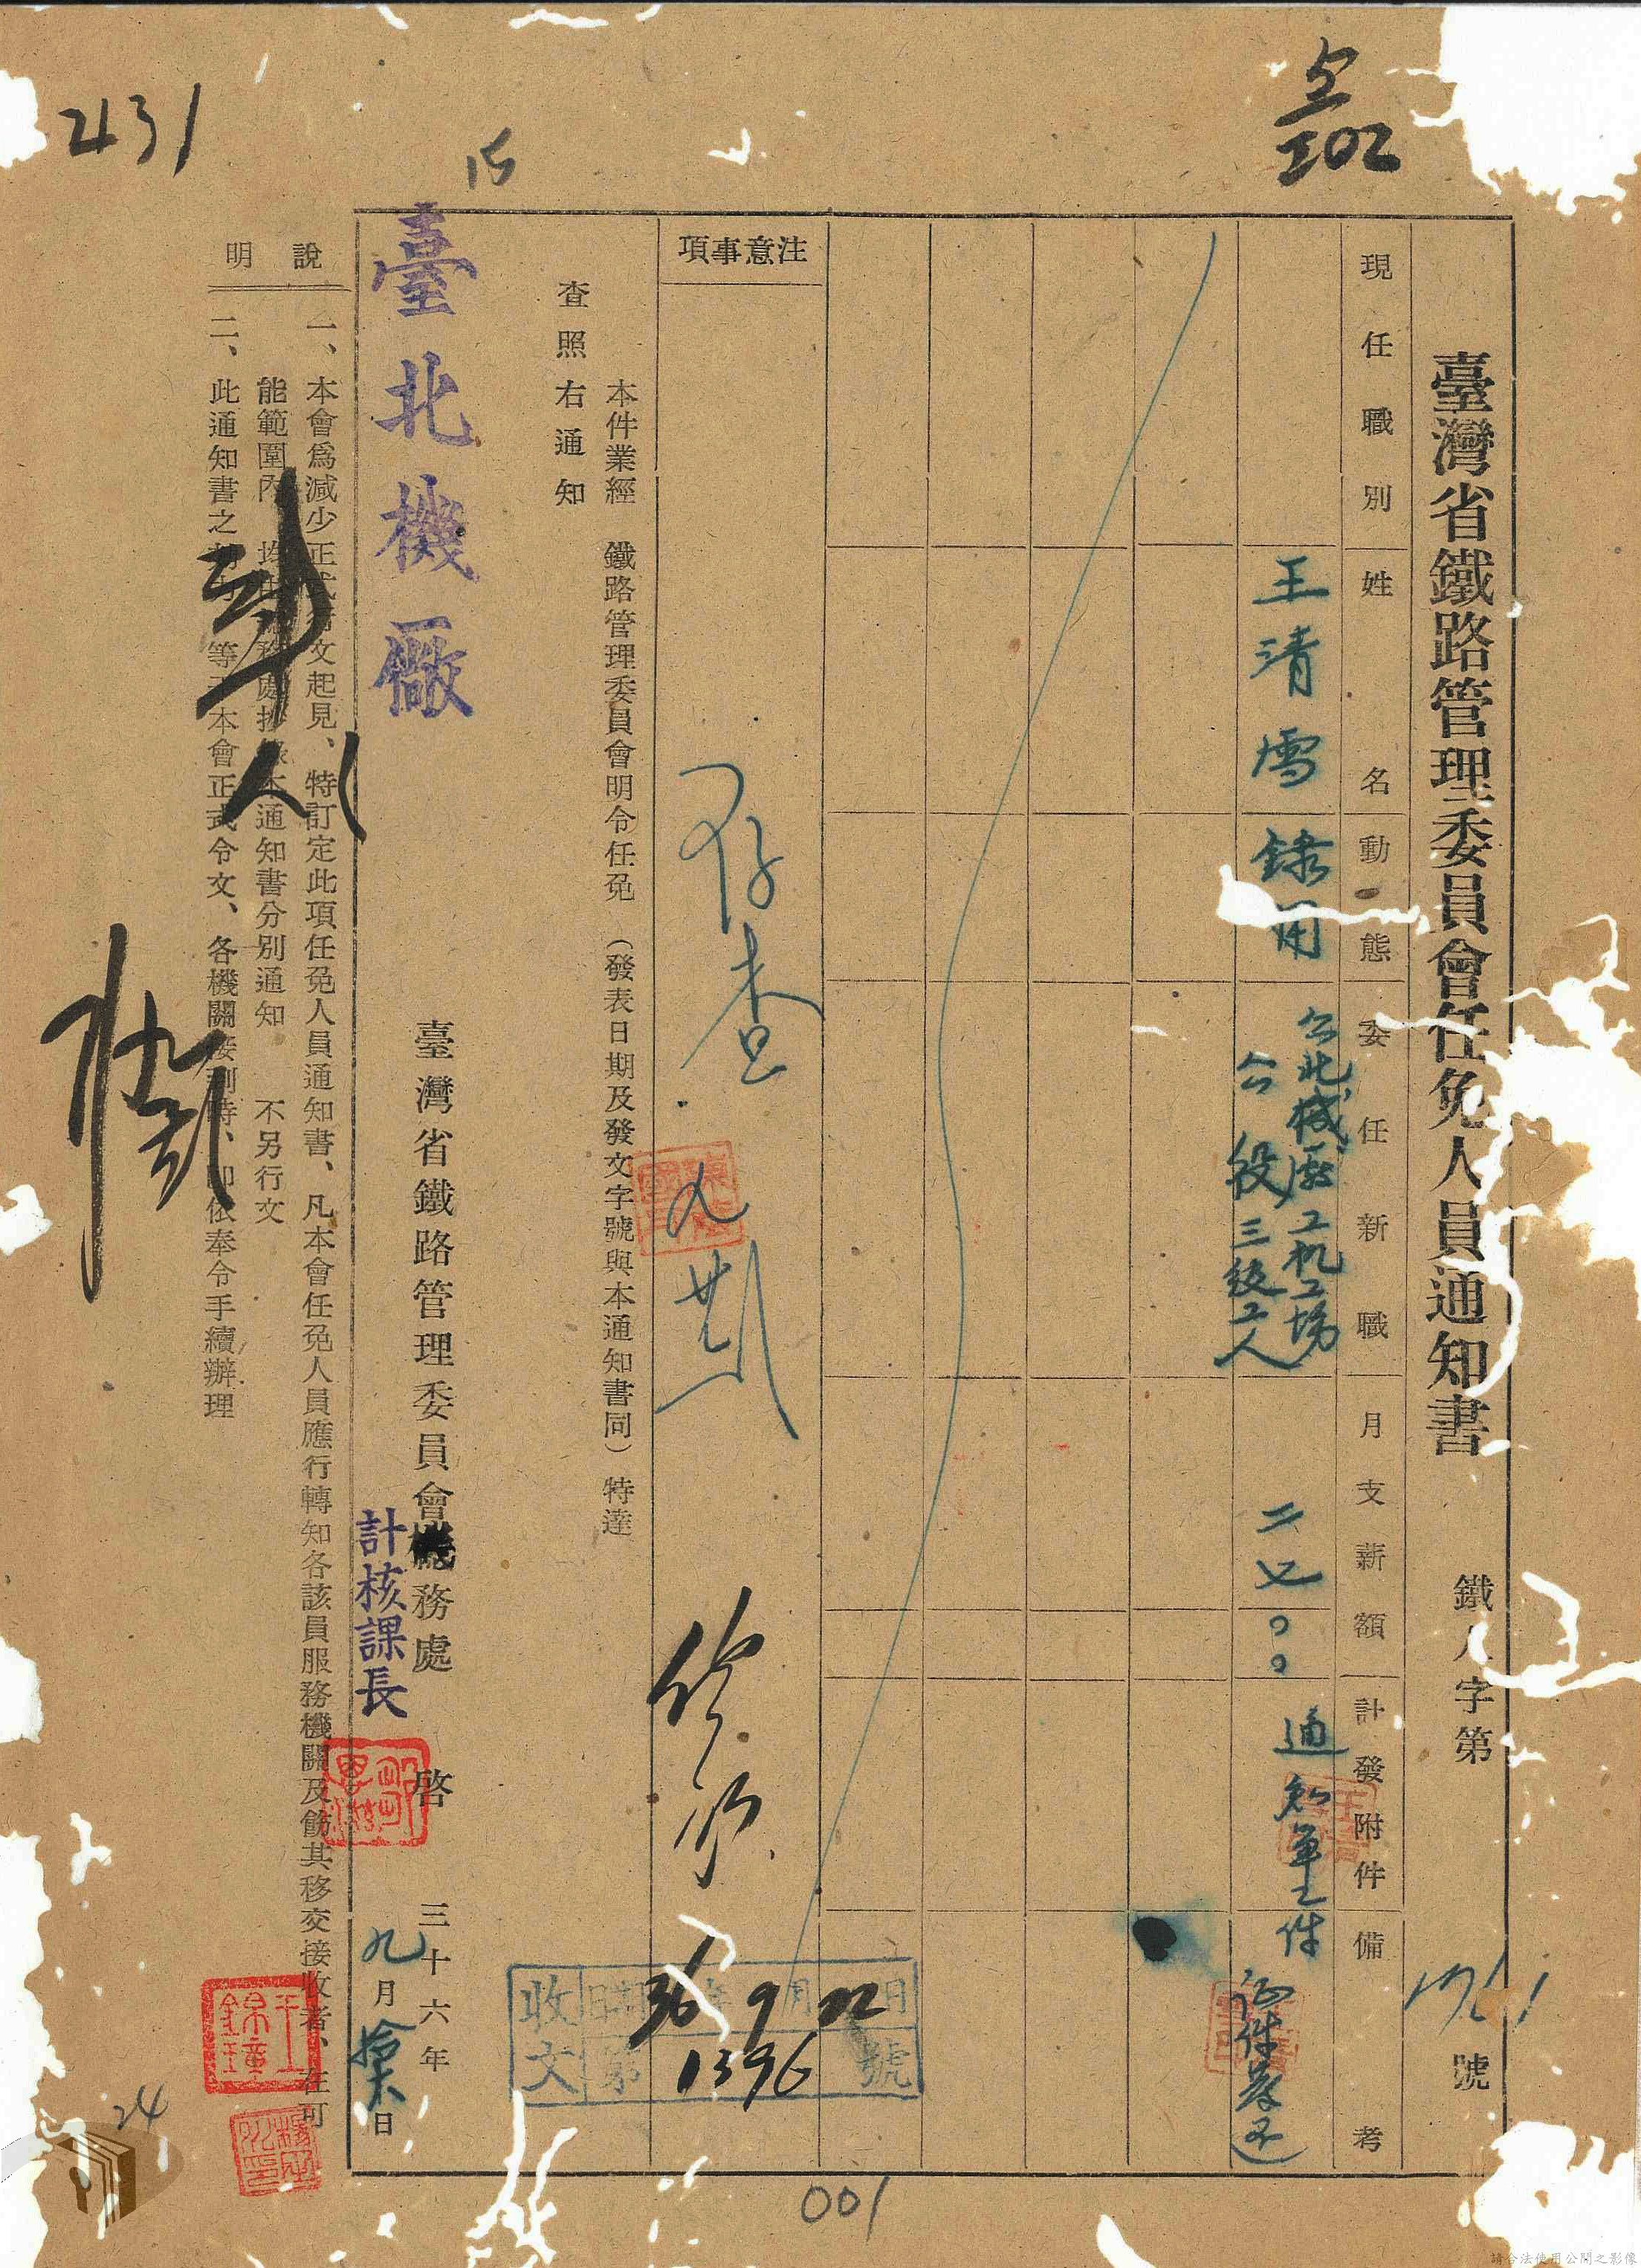 仝
202
431
15
臺灣省鐵路管理委員會任免人員通知書
鐵人字第1761號
現任職別
姓名
動態
委任新職
月支薪額
計發附件
備考
王清雪
錄用
台北機廠工机工場
公役三級工人
二七〇〇
通知單乙件
証件發還
注意事項
存查
本件業經 鐵路管理委員會明令任免 (發表日期及發文字號與本通知書同) 特達
查照右通知
臺北機廠
臺灣省鐵路管理委員會機務處 啓
計核課長
三十六年
九月拾六日
收文
日期 36年9月22日
第1396號
說明
一、本會爲減少正式行文起見、特訂定此項任免人員通知書、凡本會任免人員應行轉知各該員服務機關及飭其移交接收者、在可
能範圍內 均由 務處抄錄本通知書分別通知 不另行文
二、此通知書之 等于本會正式令文、各機關接到時、即依奉令手續辦理
人
24
001
請合法使用公開之影像